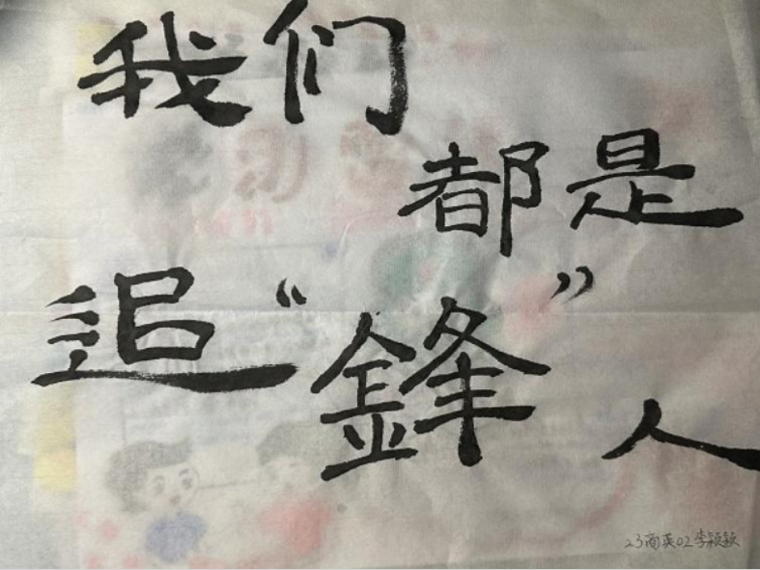 我们
都是
追“鋒”人
23商英02李颖颖